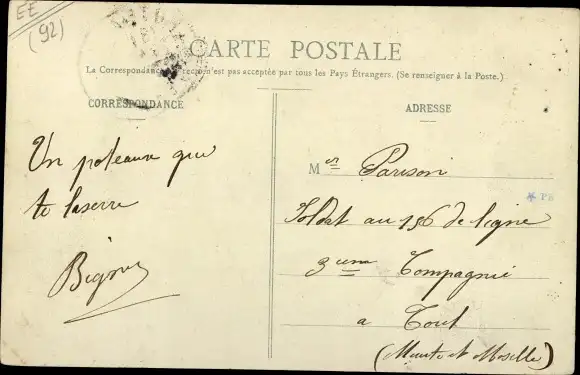 EE
(92)
CARTE POSTALE
La Correspondance au recto n'est pas acceptée par tous les Pays Étrangers. (Se renseigner à la Poste.)
CORRESPONDANCE
Un poteaux qui
te laserre
ADRESSE
Mr Parison
Soldat au 156 de ligne
3eme Compagnie
a Toul
(Meurte et Moselle)